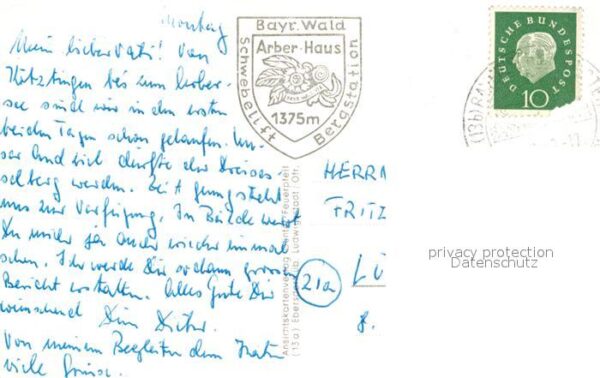 Montag
Mein lieber Vati! Von
Kötztingen bis zum Arber-
see sind wir in den ersten
beiden Tagen schon gelaufen. Un-
ser Land Ziel dürfte der Dreises-
selberg werden. Zeit genug steht
uns zur Verfügung. In Bälde wirst
Du mich ja auch wieder einmal
sehen. Ich werde Dir sodann grossen
Bericht erstatten. Alles Gute Dir
wünschend Dein Dieter.
Von meinem Begleiter dem
viele Grüsse.
Bayr. Wald
Arber-Haus
Schwebelift
Bergstation
1375m
DEUTSCHE BUNDESPOST
10
(13b)
HERRN
FRITZ
21a
LÜ
8.
Ansichtskartenverlag Günter Feuerpfeil
(13a) Ludwigsstadt/Ofr.
privacy protection
Datenschutz